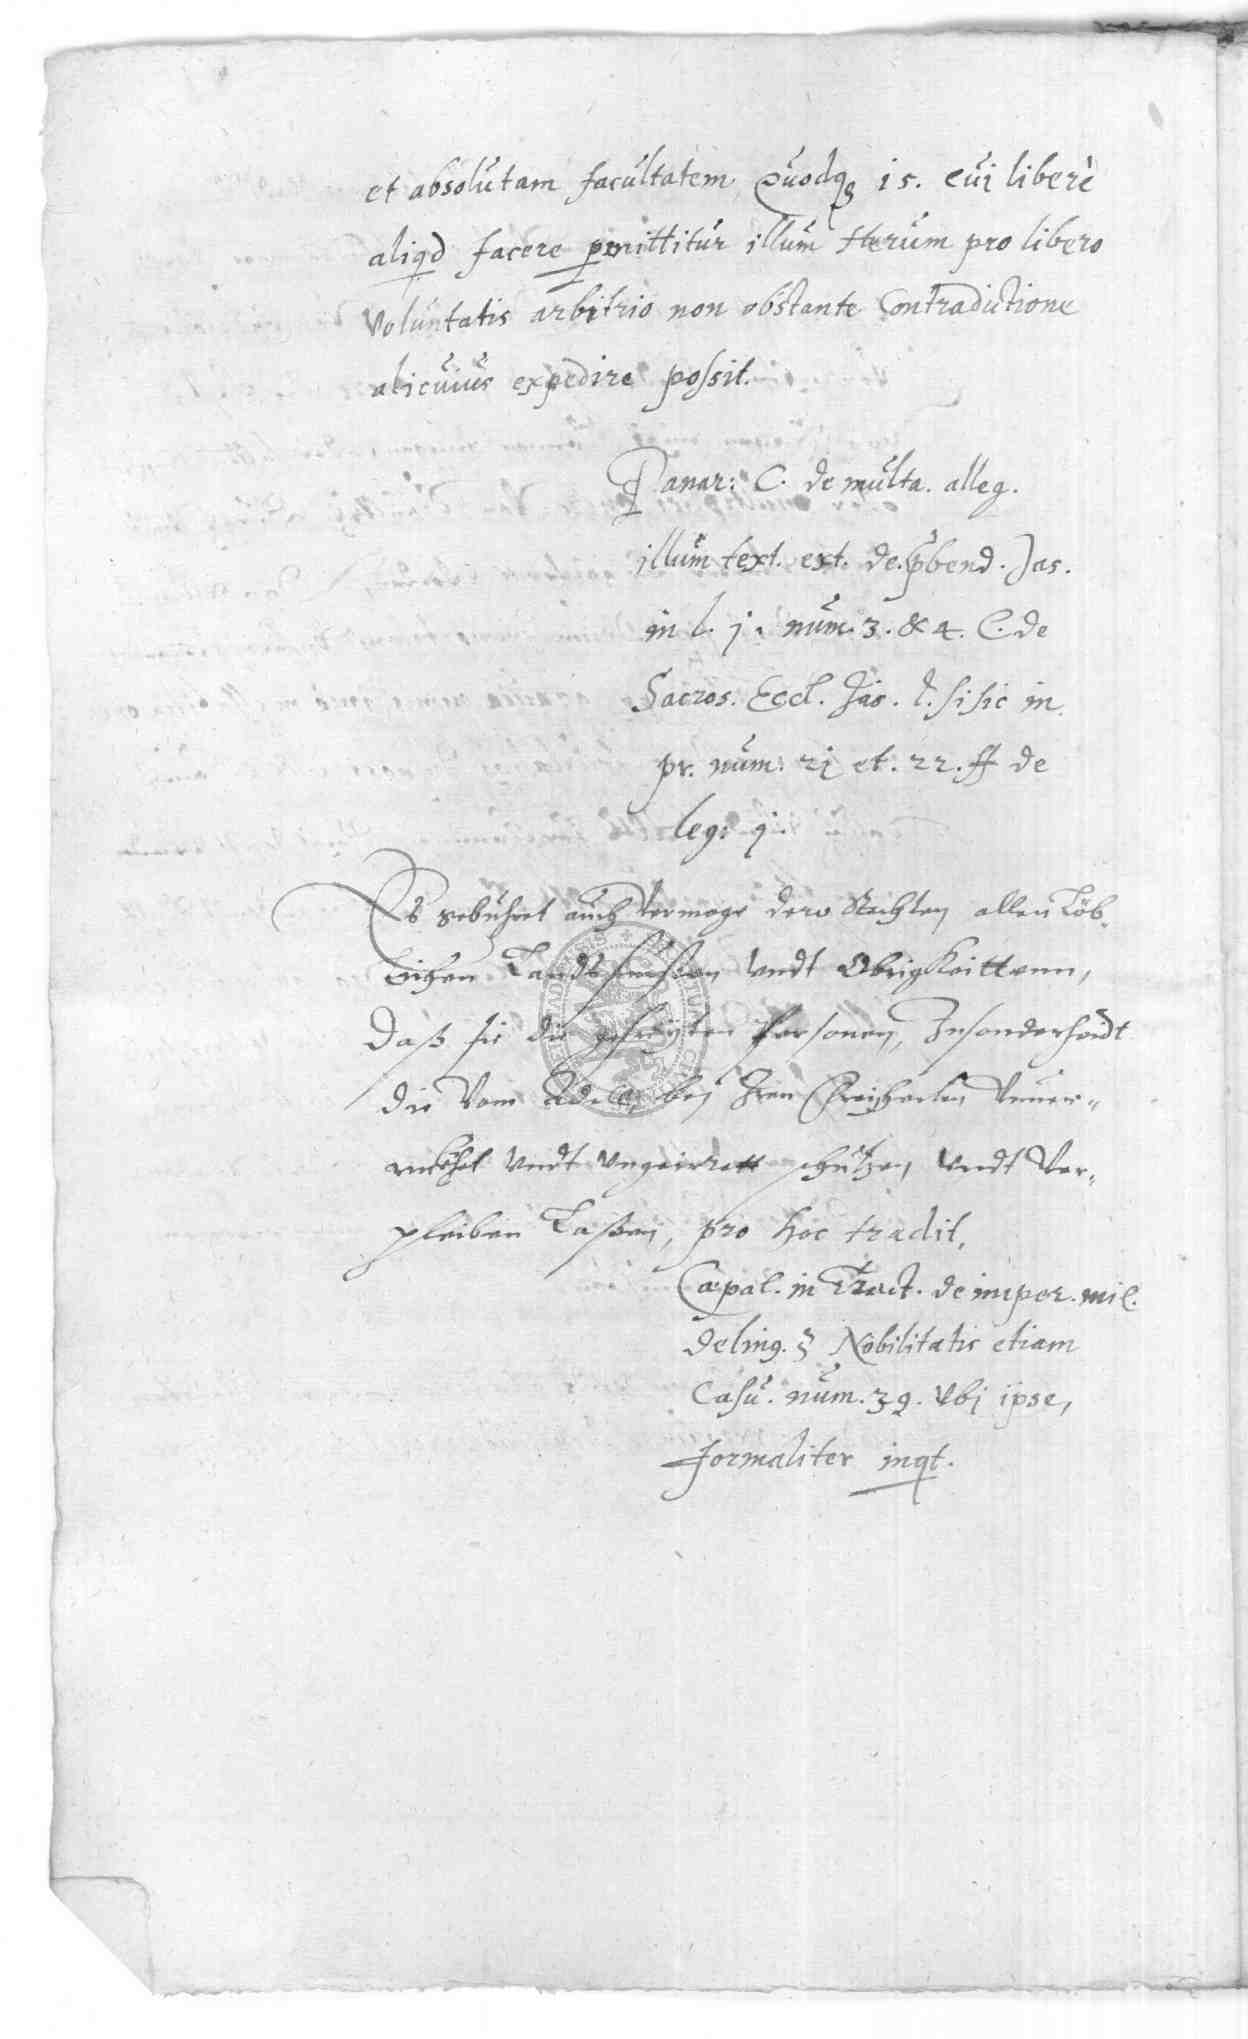 et absolutam facultatem, Quodq₃ is. cui liberè
aliqd facere pmittitur illum Herum pro libero
voluntatis arbitrio non obstante Contradictione
alicuius expedire possit.
Panar: C. de multa. alleg.
illum text. ext. de. pbend. Jas.
in l. j. num. 3. & 4. C. de
Sacros. Eccl. Jas. l. si sic in
pr. num: 21 et. 22. ff de
leg: j.
Es gebühret auch Vermoge dero Rechten allen Löb-
lichen Landtsfürsten Vndt Obrigkeittenn,
Daß sie die gefreyten Personen, Insonderheidt
die Vom Adell, bej Iren Freiheiten Vnuer-
ruckhet Vndt Vngeirrett schützen, Vndt Ver-
pleiben Laßen, pro hoc tradit,
Cæpal. in Tract. de imper. mil.
deling. § Nobilitatis etiam
Casu. num. 39. Vbj ipse,
formaliter inqt.